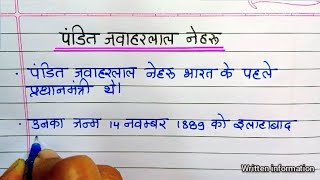 पंडित जवाहरलाल नेहरू
• पंडित जवाहरलाल नेहरू भारत के पहले
प्रधानमंत्री थे।
• उनका जन्म 14 नवम्बर 1889 को इलाहाबाद
Written information